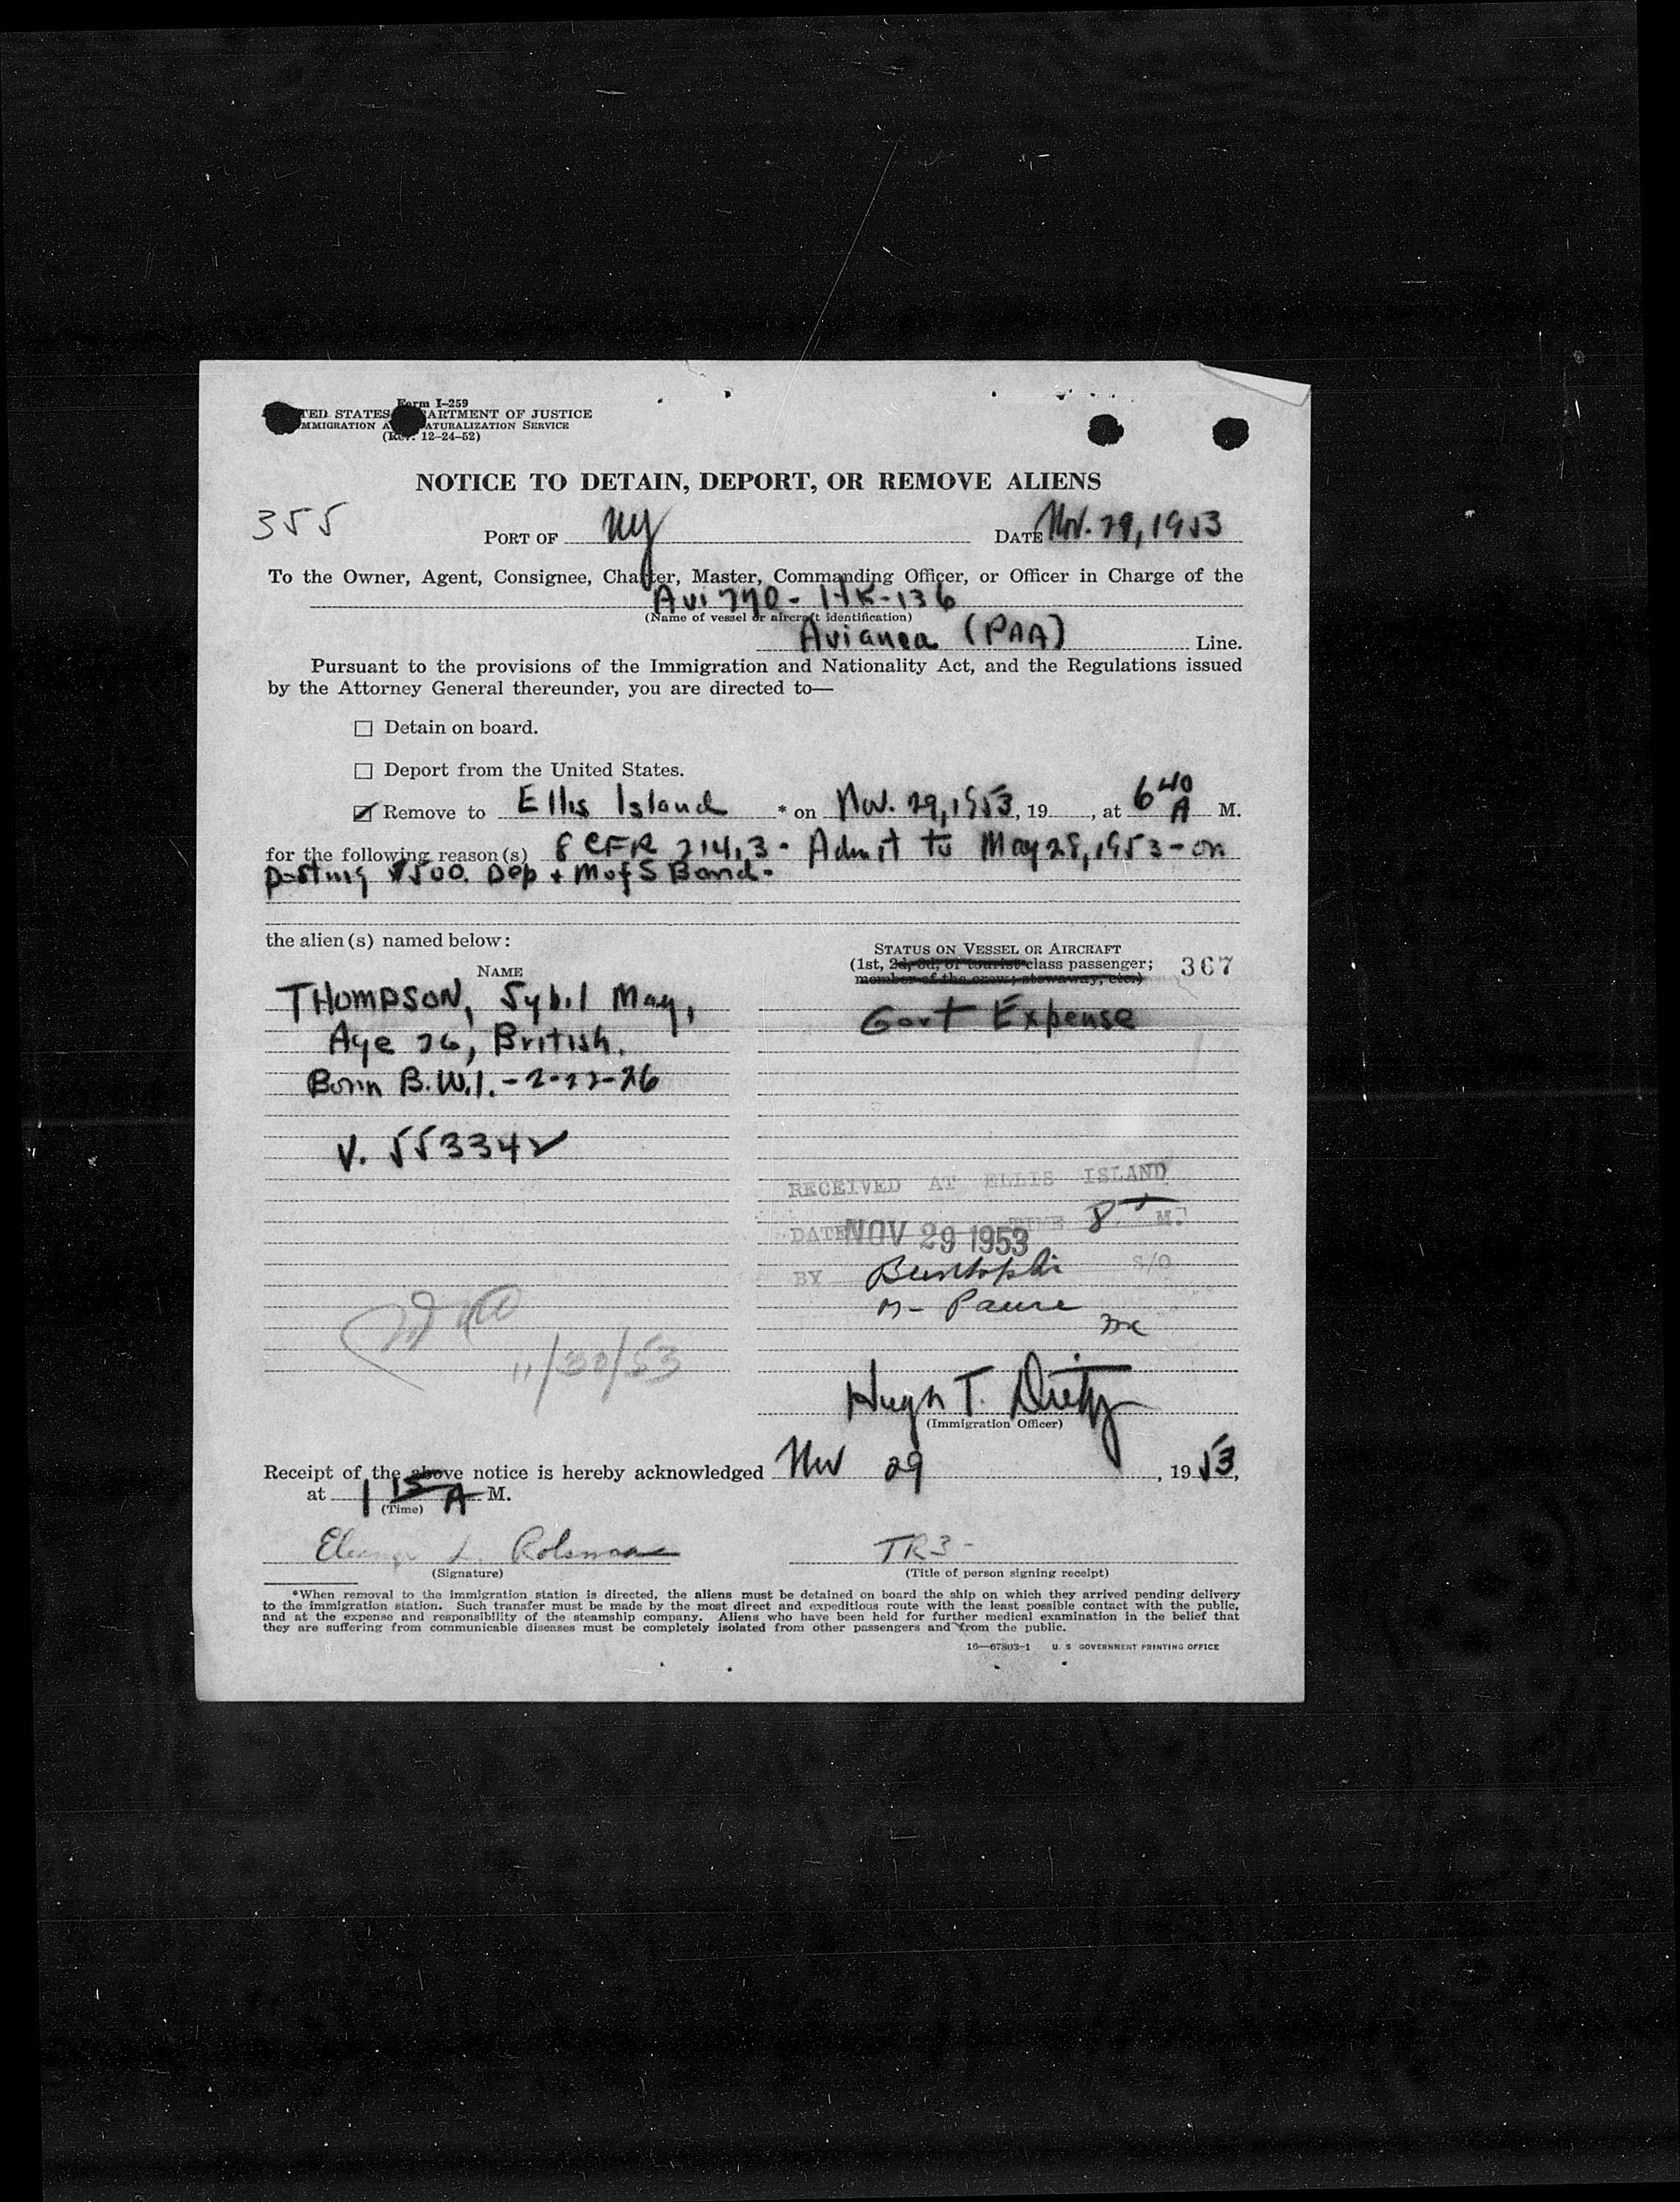 Form I-259
TED STATES ARTMENT OF JUSTICE
MMIGRATION A ATURALIZATION SERVICE
(Rev. 12-24-52)
NOTICE TO DETAIN, DEPORT, OR REMOVE ALIENS
355
PORT OF NY DATE Nov. 29, 1953
To the Owner, Agent, Consignee, Charter, Master, Commanding Officer, or Officer in Charge of the
Avi 770 - HK-136
(Name of vessel or aircraft identification)
Avianca (PAA) Line.
Pursuant to the provisions of the Immigration and Nationality Act, and the Regulations issued
by the Attorney General thereunder, you are directed to—
☐ Detain on board.
☐ Deport from the United States.
☑ Remove to Ellis Island * on Nov. 29, 1953, 19 , at 6 40 A M.
for the following reason(s) 8 CFR 214.3 - Admit to May 28, 1953 - on
posting $500. Dep + M of S Bond -
the alien(s) named below:
STATUS ON VESSEL OR AIRCRAFT
NAME
(1st, 2d, 3d, or tourist class passenger;
member of the crew; stowaway, etc.)
367
THOMPSON, Sybil May,
Govt Expense
Age 26, British.
Born B.W.I. - 2-22-26
V. 553342
RECEIVED AT ELLIS ISLAND
DATE NOV 29 1953 TIME 8 M.
BY S/O
11/30/53
Hugh T. Dietz
(Immigration Officer)
Receipt of the above notice is hereby acknowledged Nov 29, 1953,
at 1 15 A M.
(Time)
L. TR3 -
(Signature) (Title of person signing receipt)
*When removal to the immigration station is directed, the aliens must be detained on board the ship on which they arrived pending delivery
to the immigration station. Such transfer must be made by the most direct and expeditious route with the least possible contact with the public,
and at the expense and responsibility of the steamship company. Aliens who have been held for further medical examination in the belief that
they are suffering from communicable diseases must be completely isolated from other passengers and from the public.
16—67803-1 U. S. GOVERNMENT PRINTING OFFICE